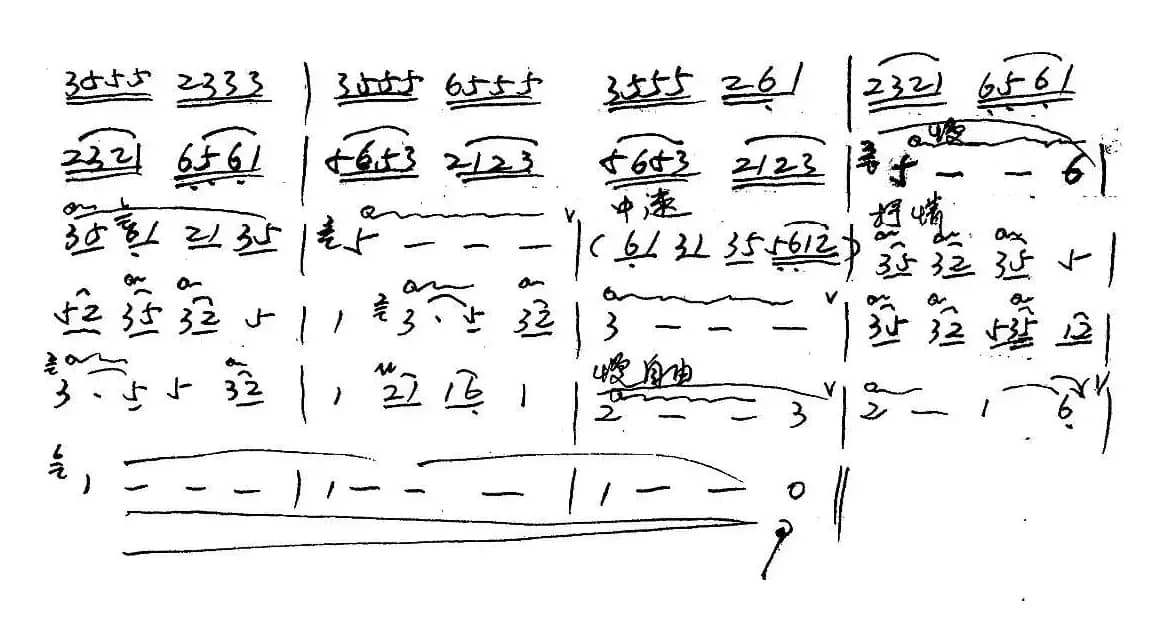 3555 2333 | 3555 6555 3555 261 | 2321 6561
慢
2321 6561 | 5653 2123 5653 2123 | 5 – – 6 |
中速 抒情
35 61 21 35 | 5 – – – | (61 31 35 5612) 35 32 35 5 |
52 35 32 5 | 1 3 · 5 32 | 3 – – – | 35 32 535 12 |
慢 自由
3 · 5 5 32 | 1 21 16 1 | 2 – – 3 | 2 – 1 6 |
1 – – – | 1 – – – | 1 – – 0 ‖